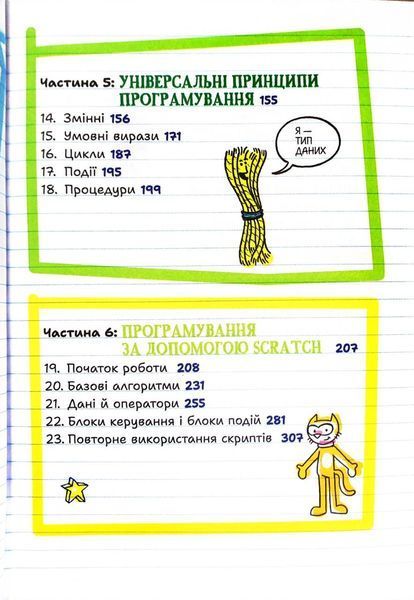 Частина 5: УНІВЕРСАЛЬНІ ПРИНЦИПИ
ПРОГРАМУВАННЯ 155
14. Змінні 156
15. Умовні вирази 171
16. Цикли 187
17. Події 195
18. Процедури 199
Я —
ТИП
ДАНИХ
Частина 6: ПРОГРАМУВАННЯ
ЗА ДОПОМОГОЮ SCRATCH 207
19. Початок роботи 208
20. Базові алгоритми 231
21. Дані й оператори 255
22. Блоки керування і блоки подій 281
23. Повторне використання скриптів 307